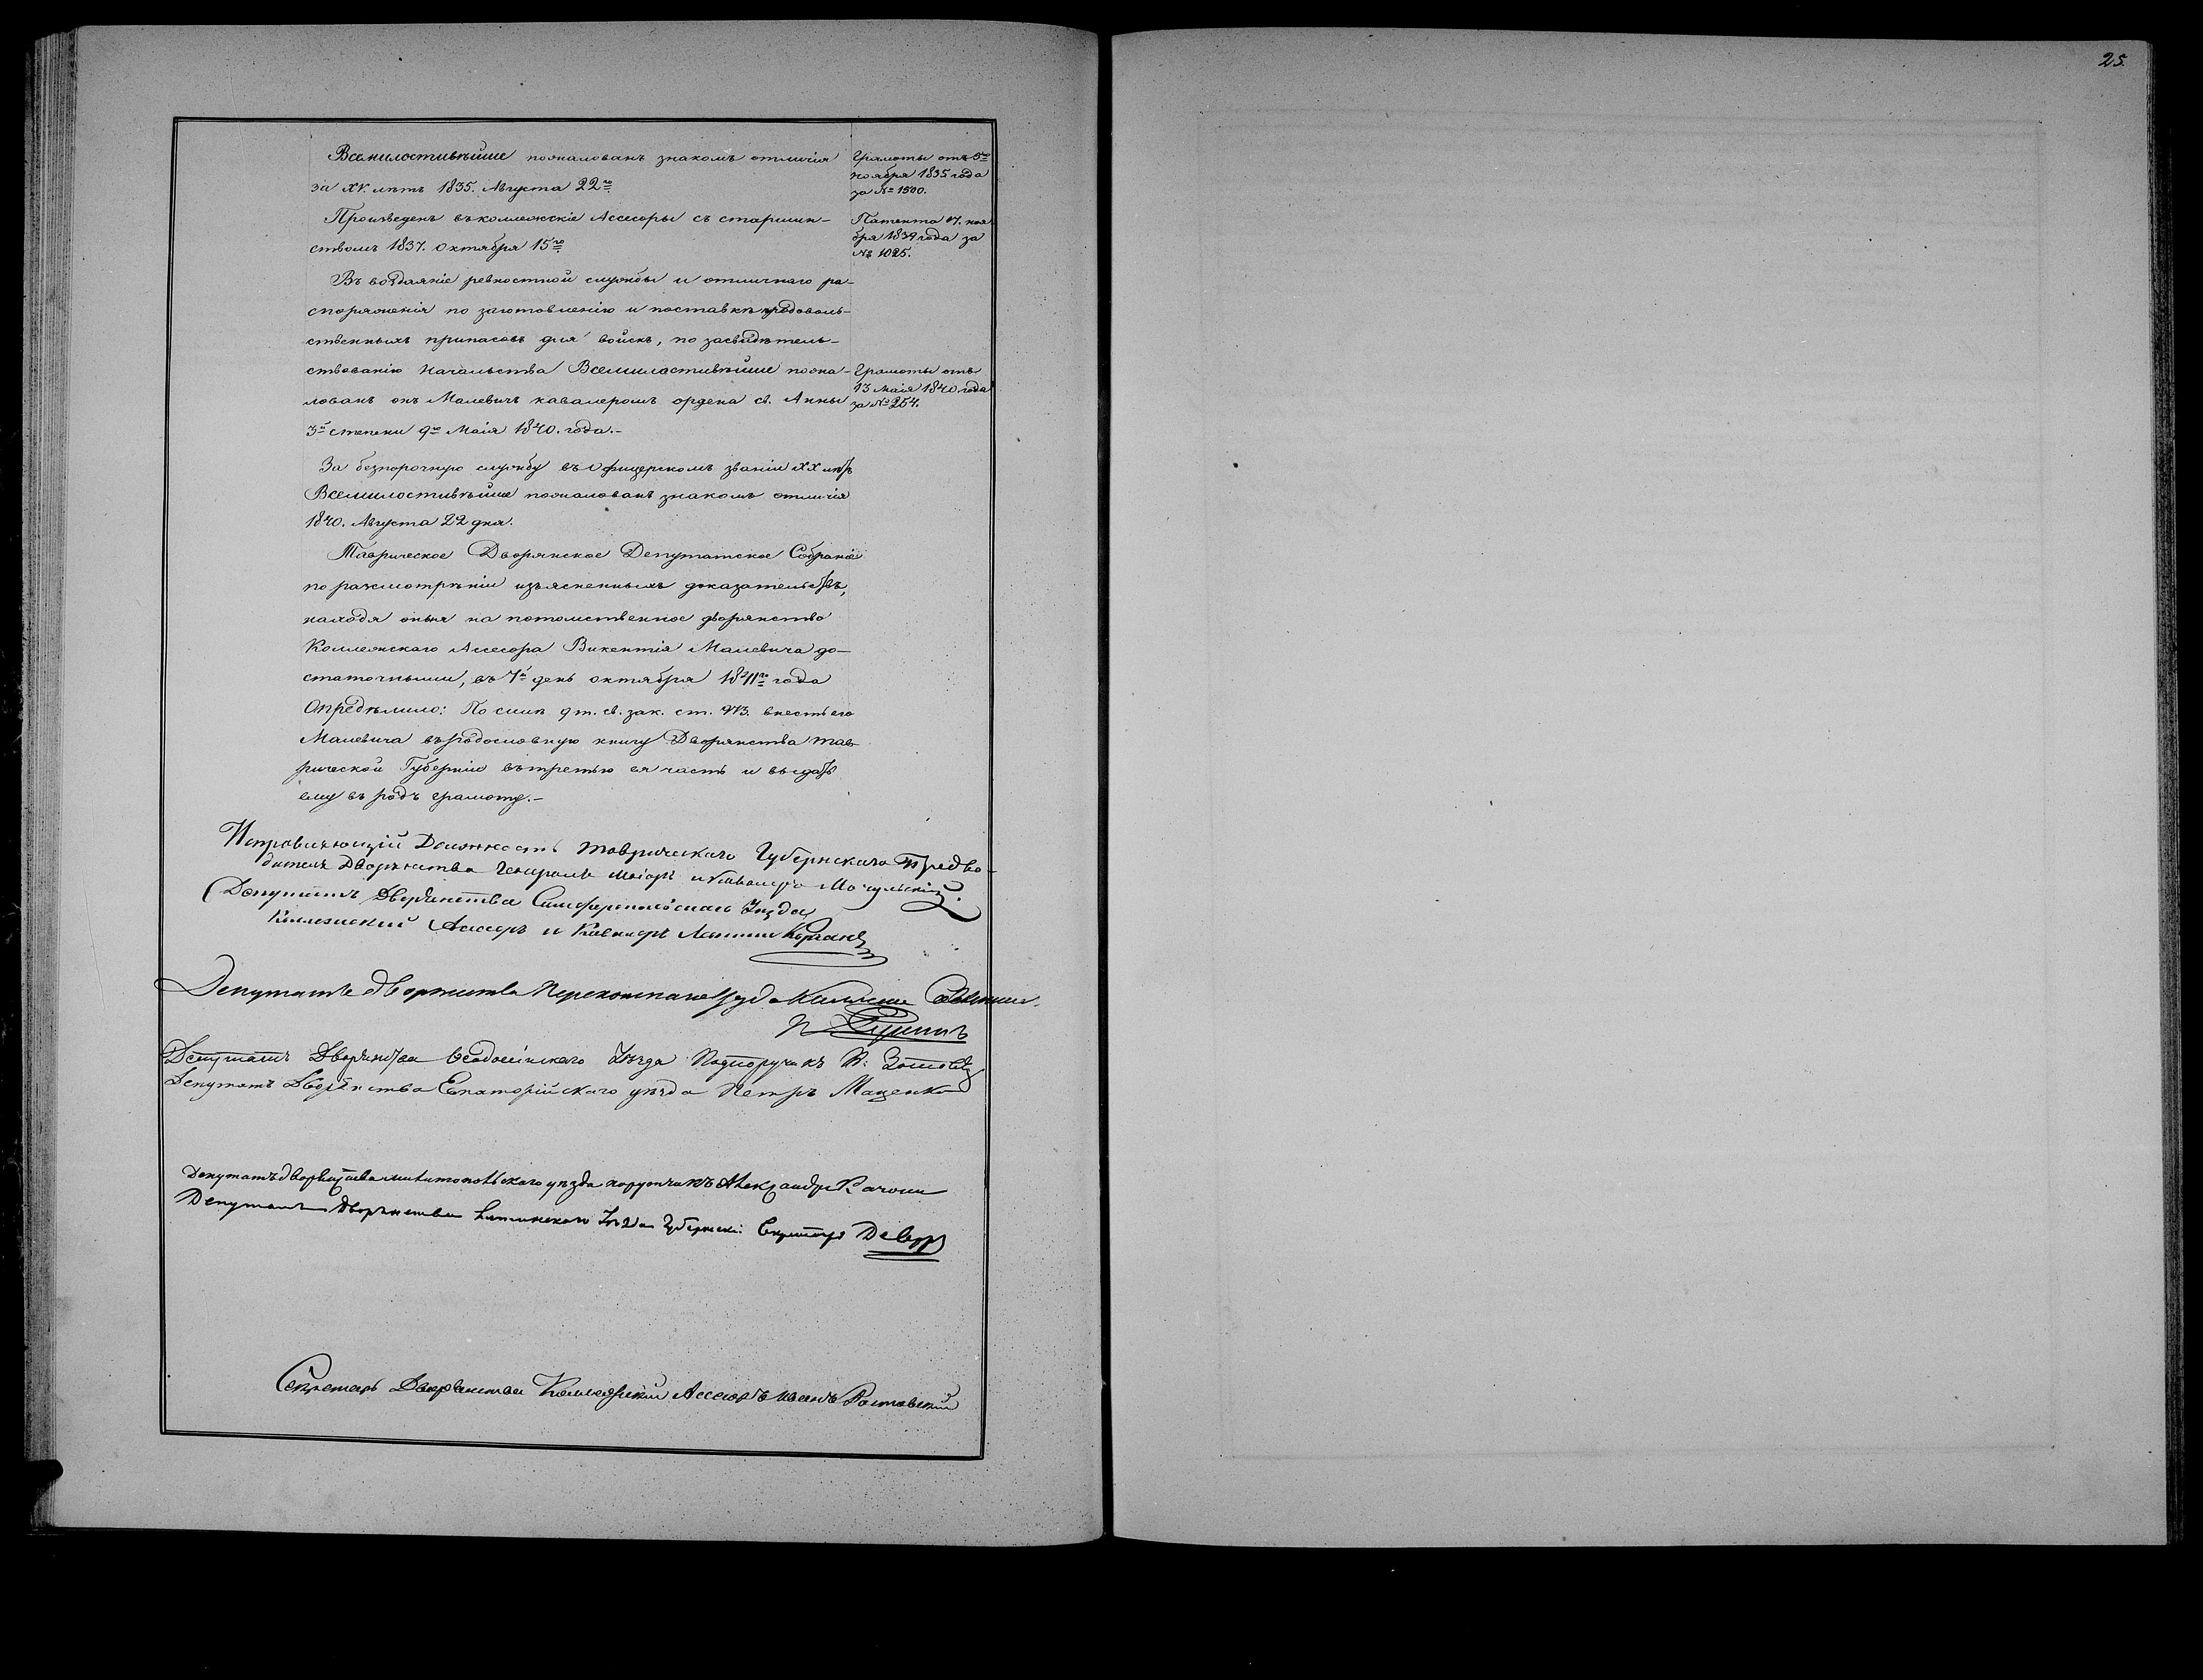 25.
Всемилостивѣйше пожалованъ знакомъ отличія
за XV. лѣтъ 1835. Августа 22го
Грамоты отъ 5го
ноября 1835 года
за № 1500.
Произведенъ въ коллежскіе Ассесоры съ старшин-
ствомъ 1837. Октября 15го
Патента 7. ноя
бря 1839 года за
№ 1025.
Въ воздаяніе ревностной службы и отличнаго ра-
споряженія по заготовленію и поставкѣ продоволь-
ственныхъ припасовъ для войскъ, по засвидѣтель-
ствованію Начальства Всемиластивѣйше пожа-
лованъ онъ Малевичъ кавалеромъ ордена св. Анны
3й степени 9го Маія 1840. года.-
Грамоты отъ
13 маія 1840 года
за № 254.
За безпорочную службу въ Офицерскомъ званіи XX лѣтъ
Всемилостивѣйше пожалованъ знакомъ отличія
1840. Августа 22 дня.
Таврическое Дворянское Депутатское Собраніе
по разсмотрѣніи изъясненныхъ доказательствъ,
находя оныя на потомственное дворянство
Коллежскаго Ассесора Викентія Малевича до-
статочными, въ 7й день октября 1841го года
Опредѣлило: По силѣ 9 т. св. зак. ст. 973. внесть его
Малевича въ родословную книгу Дворянства Тав-
рической Губерніи въ третью ея часть и выдать
ему въ родъ грамоту.-
Исправляющій Должность Таврическаго Губернскаго Предво-
дителя Дворянства Генералъ Маіоръ и Кавалеръ
Депутатъ Дворянства Симферопольскаго Уѣзда
Коллежскій Ассесоръ и Кавалеръ
Депутатъ дворянства Перекопскаго уѣзда
Депутатъ Дворянства Ѳеодосійскаго Уѣзда Подпоручикъ
Депутатъ Дворянства Евпаторійскаго уѣзда Петръ Маценко
Депутатъ дворянства мелитопольскаго уѣзда поручикъ Александръ
Депутатъ Дворянства Ялтинскаго Уѣзда Губернскій Секретарь
Секретарь Дворянства Коллежскій Ассесоръ Иванъ Ростовскій